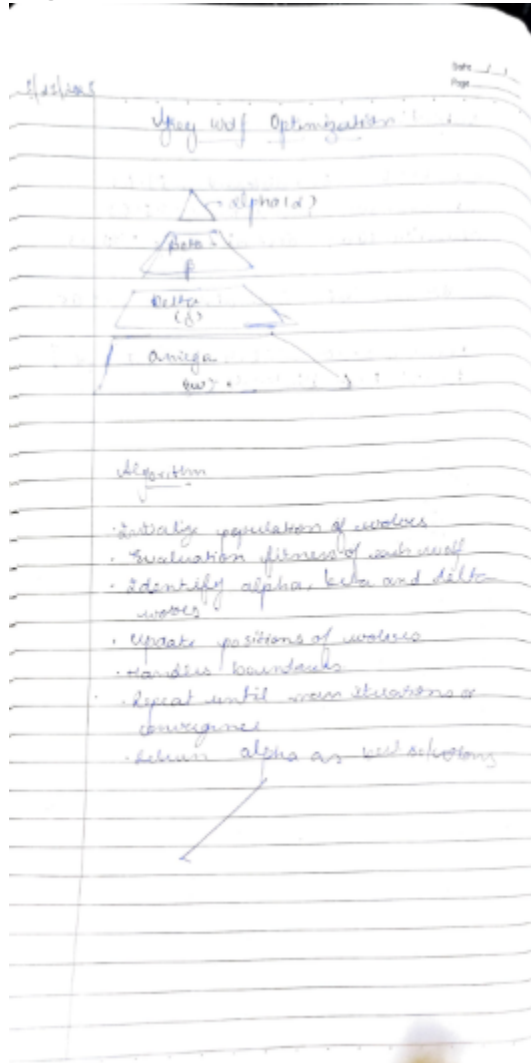 Date
Page
Grey Wolf Optimization
alpha (α)
Beta
β
Delta
(δ)
Omega
(ω)
Algorithm
· Initialize population of wolves
· Evaluation fitness of each wolf
· Identify alpha, beta and delta
wolves
· Update positions of wolves
· Handles boundaries
· Repeat until max iterations or
convergence
· Return alpha as best solutions